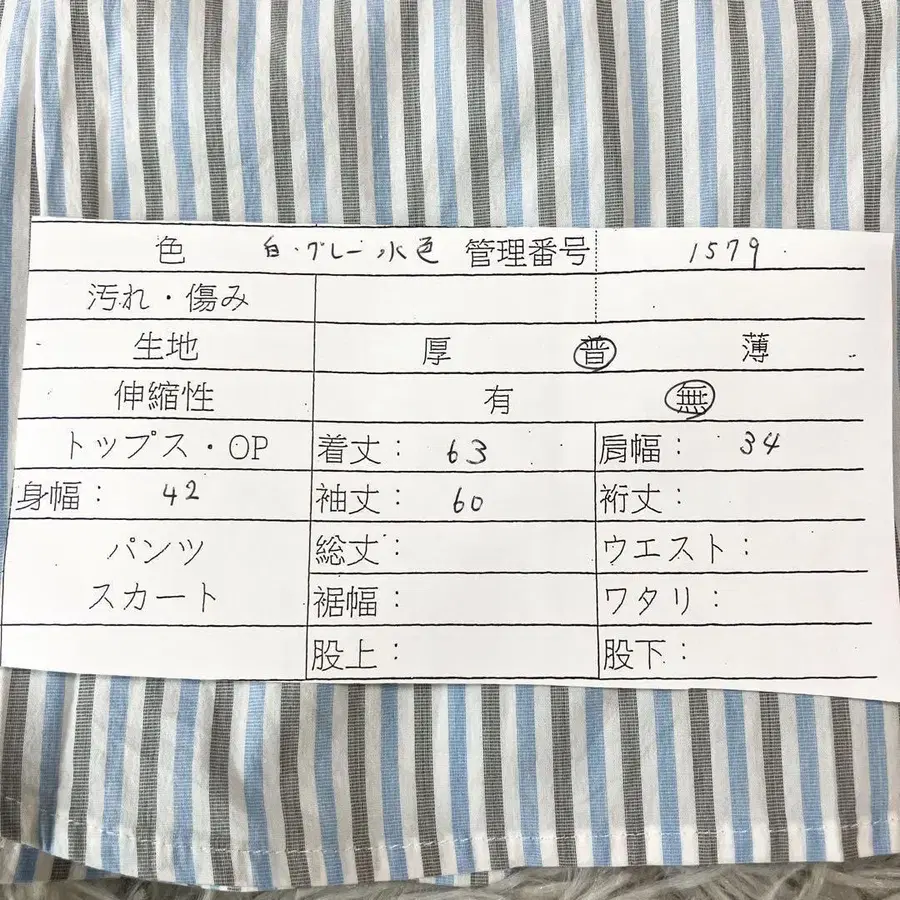 色 白・グレー 水色 管理番号 1579
汚れ・傷み
生地 厚 普 薄
伸縮性 有 無
トップス・OP 着丈： 63 肩幅： 34
身幅： 42 袖丈： 60 裄丈：
パンツ 総丈： ウエスト：
スカート 裾幅： ワタリ：
股上： 股下：